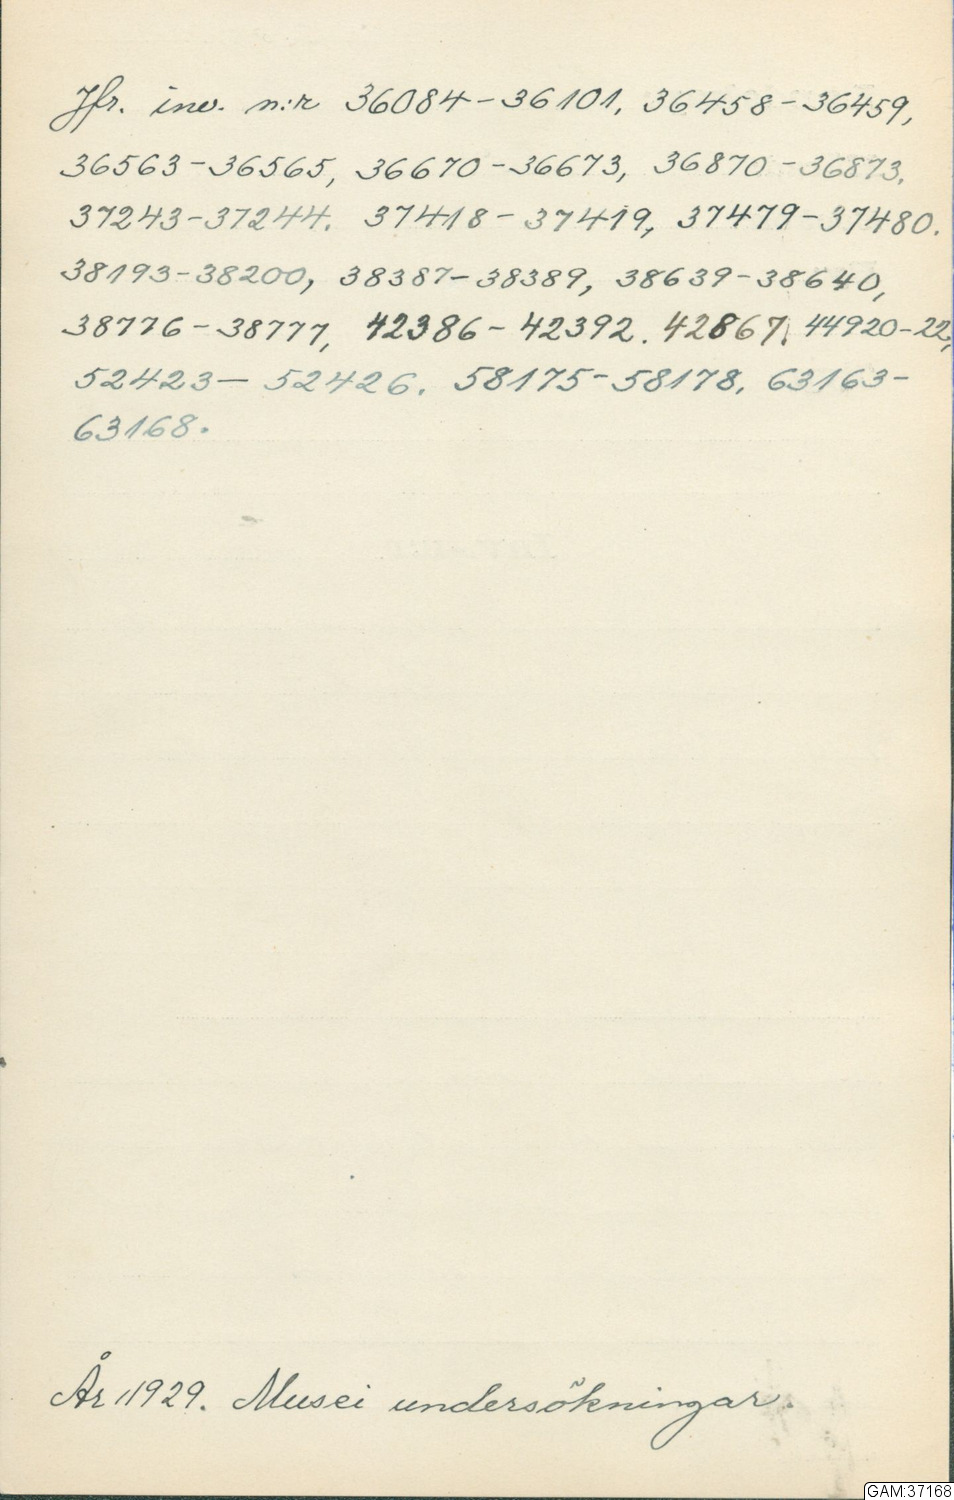 Jfr. inv. n:r 36084-36101, 36458-36459,
36563-36565, 36670-36673, 36870-36873.
37243-37244. 37418-37419, 37479-37480.
38193-38200, 38387-38389, 38639-38640,
38776-38777, 42386-42392. 42867, 44920-22,
52423-52426. 58175-58178, 63163-
63168.
År 1929. Musei undersökningar.
GAM:37168